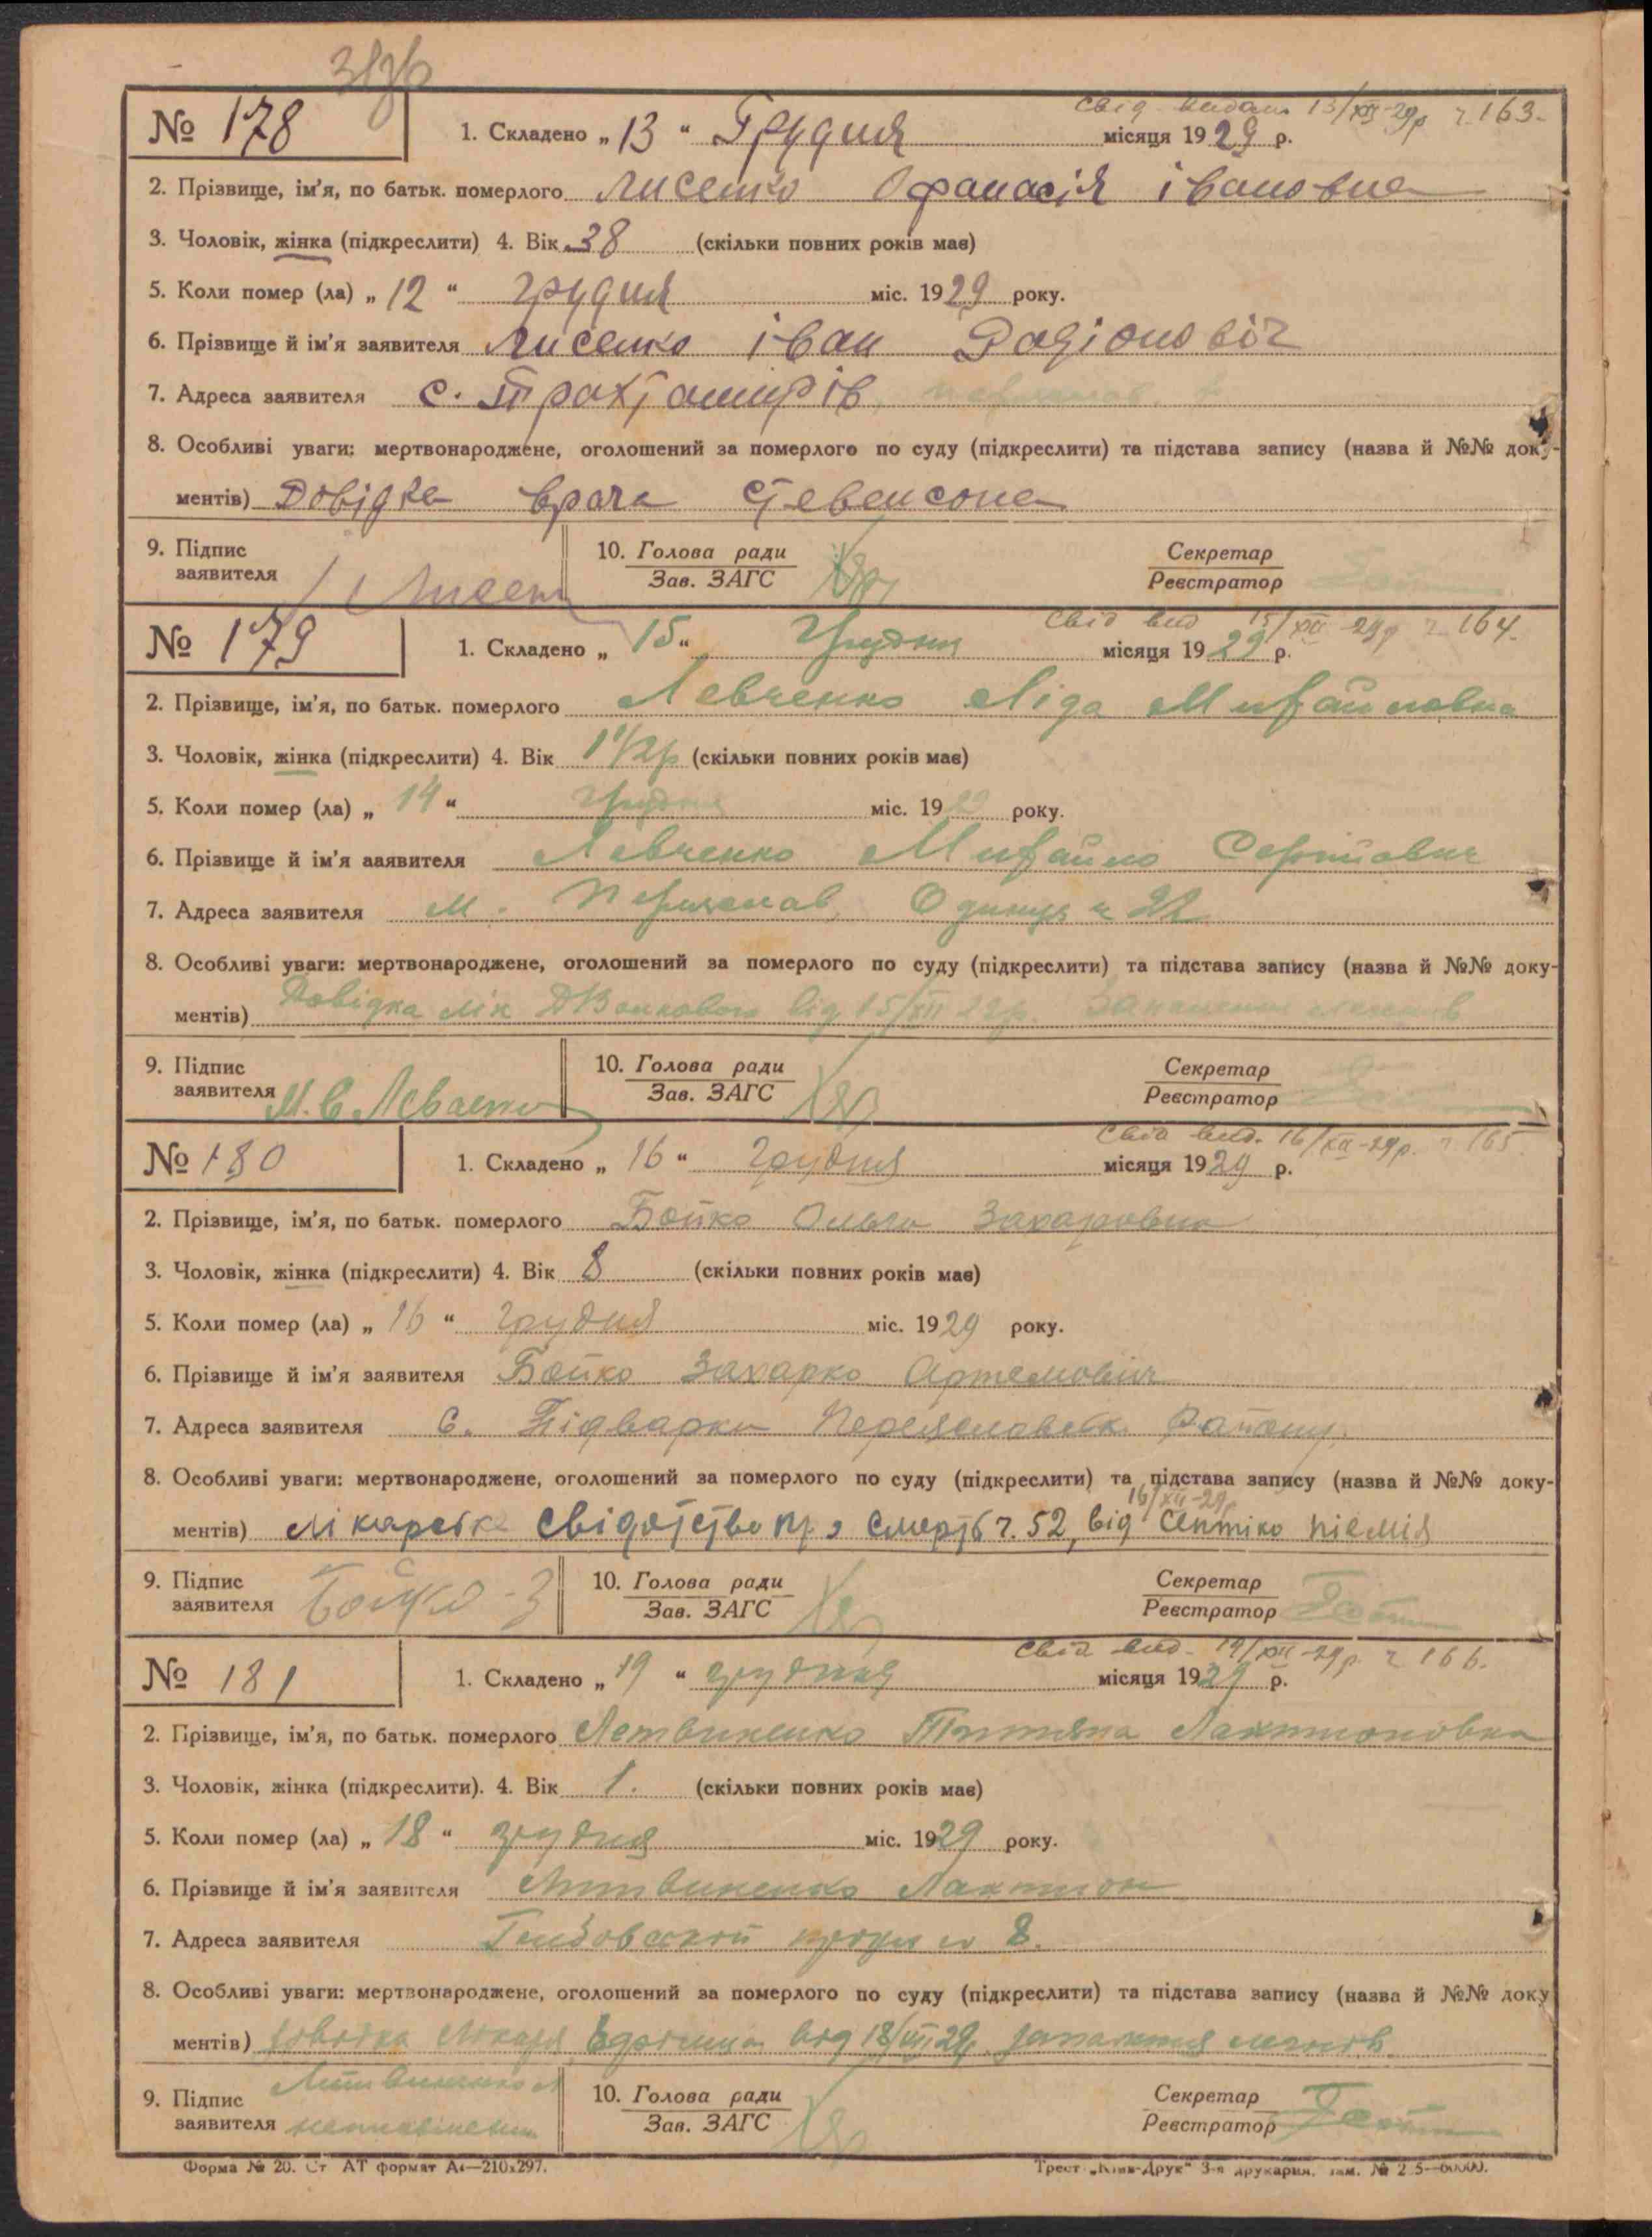 № 178
Свід. видан. 13/XII-29р ч. 163.
1. Складено „ 13 “ Грудня місяця 1929 р.
2. Прізвище, ім'я, по батьк. померлого Лисенко Офанасія івановна
3. Чоловік, жінка (підкреслити) 4. Вік 38 (скільки повних років має)
5. Коли помер (ла) „ 12 “ грудня міс. 1929 року.
6. Прізвище й ім'я заявителя Лисенко іван Радіоновіч
7. Адреса заявителя с. Трахтомирів,
8. Особливі уваги: мертвонароджене, оголошений за померлого по суду (підкреслити) та підстава запису (назва й №№ доку-
ментів) Довідка врача Стевенсона
9. Підпис 10. Голова ради Секретар
заявителя Лисен Зав. ЗАГС Реєстратор
№ 179
Свід вид 15/XII-29р ч. 164.
1. Складено „ 15 “ Грудня місяця 1929 р.
2. Прізвище, ім'я, по батьк. померлого Левченко Ліда Михайловна
3. Чоловік, жінка (підкреслити) 4. Вік 1 1/2 р (скільки повних років має)
5. Коли помер (ла) „ 14 “ Грудня міс. 1929 року.
6. Прізвище й ім'я ааявителя Левченко Михайло
7. Адреса заявителя м. Переяслав, 22
8. Особливі уваги: мертвонароджене, оголошений за померлого по суду (підкреслити) та підстава запису (назва й №№ доку-
ментів) Довідка лік від 15/XII 29р. Запалення легенів
9. Підпис 10. Голова ради Секретар
заявителя М. С. Левченко Зав. ЗАГС Реєстратор
№ 180
Свід вид. 16/XII-29р. ч. 165.
1. Складено „ 16 “ грудня місяця 1929 р.
2. Прізвище, ім'я, по батьк. померлого Бойко Ольга Захаровна
3. Чоловік, жінка (підкреслити) 4. Вік 8 (скільки повних років має)
5. Коли помер (ла) „ 16 “ грудня міс. 1929 року.
6. Прізвище й ім'я заявителя Бойко Захарко Артемовіч
7. Адреса заявителя С. Підварки Переяславськ. Району.
8. Особливі уваги: мертвонароджене, оголошений за померлого по суду (підкреслити) та підстава запису (назва й №№ доку-
16/XII-29р
ментів) Лікарське свідотство про смерть ч. 52, від Септіко піемія
9. Підпис 10. Голова ради Секретар
заявителя Бойко З Зав. ЗАГС Реєстратор
№ 181
Свід вид. 19/XII-29р. ч 166.
1. Складено „ 19 “ грудня місяця 1929 р.
2. Прізвище, ім'я, по батьк. померлого Летвиненко Титяна Лактионовна
3. Чоловік, жінка (підкреслити). 4. Вік 1. (скільки повних років має)
5. Коли помер (ла) „ 18 “ грудня міс. 1929 року.
6. Прізвище й ім'я заявителя Литвиненко Лактион
7. Адреса заявителя 8.
8. Особливі уваги: мертвонароджене, оголошений за померлого по суду (підкреслити) та підстава запису (назва й №№ доку
ментів) довідка Лікаря від 18/XII 29р. запалення легенів.
9. Підпис Литвиненко Л 10. Голова ради Секретар
заявителя Зав. ЗАГС Реєстратор
Форма № 20. Ст АТ формат А4—210х297. Трест „Київ-Друк“ 3-я друкарня.